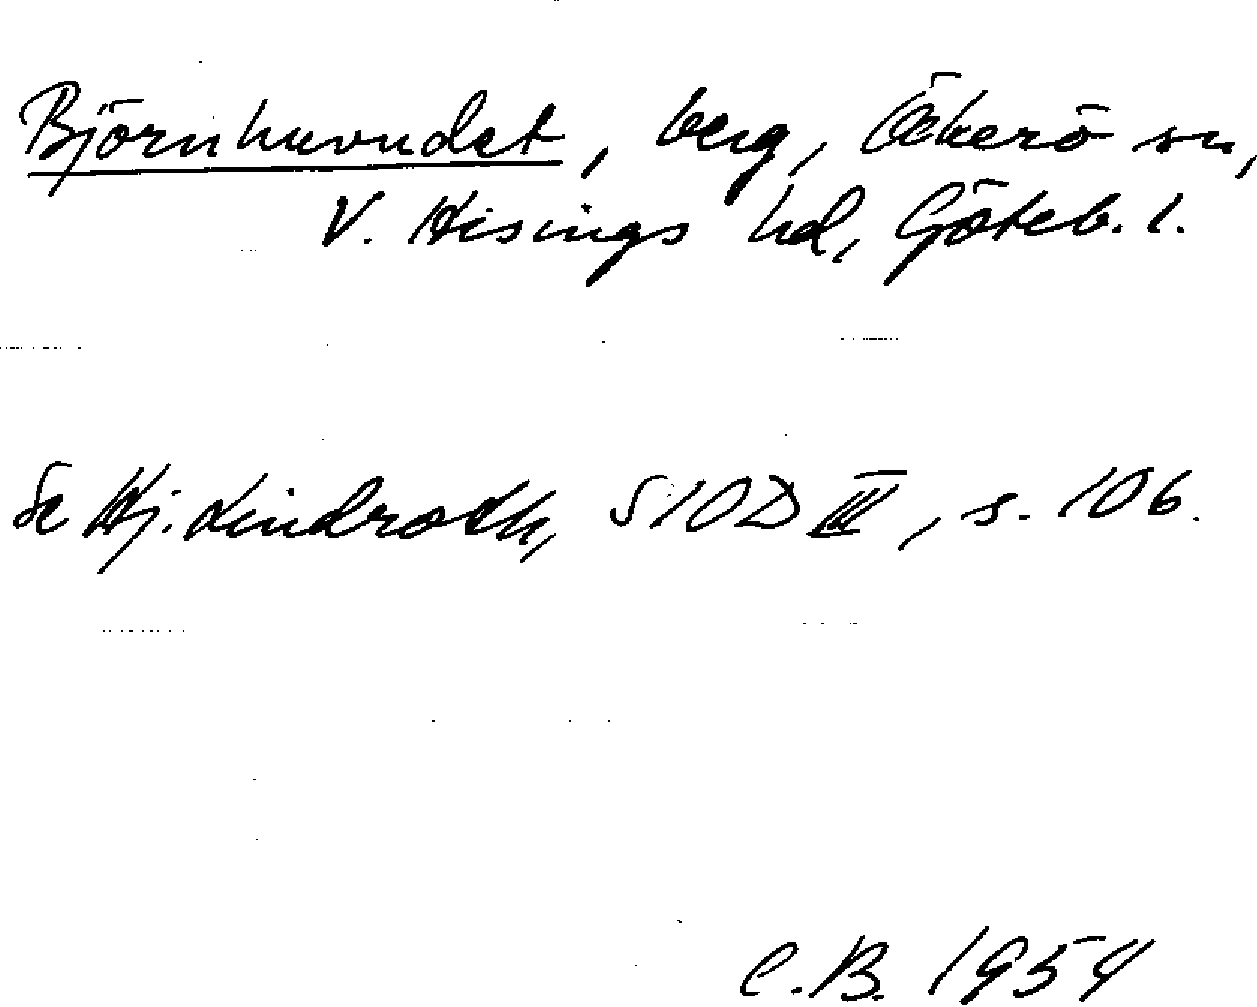 Björnhuvudet, berg, Öckerö sn,
V. Hisings hd, Göteb. l.
Se Hj. Lindroth, SIOD III, s. 106.
C.B. 1954